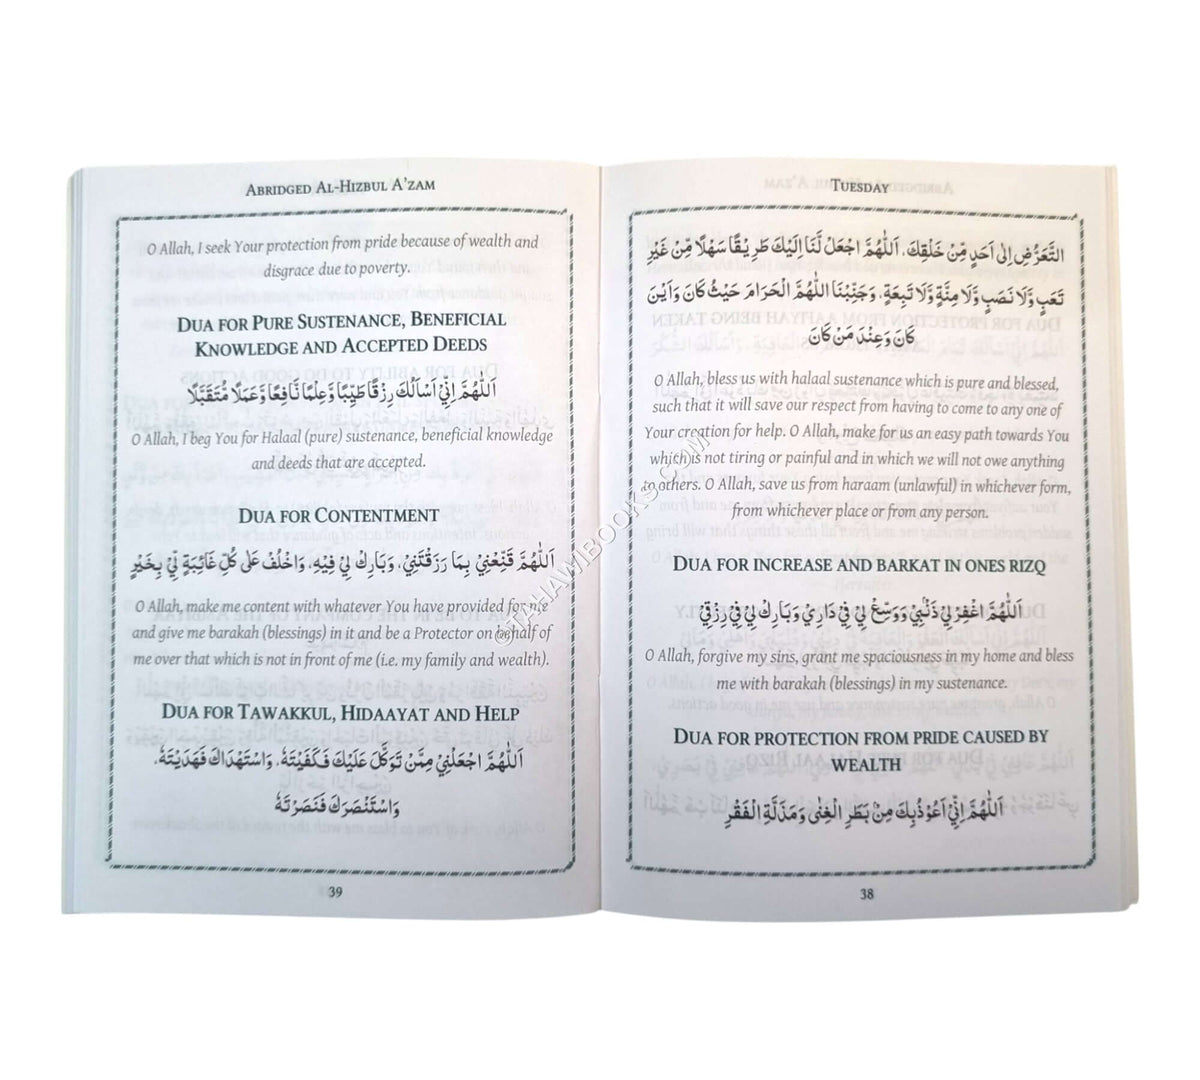 TUESDAY
التَّعَرُّضِ اِلٰى اَحَدٍ مِّنْ خَلْقِكَ، اَللّٰهُمَّ اجْعَلْ لَّنَا اِلَيْكَ طَرِيْقًا سَهْلًا مِّنْ غَيْرِ
تَعَبٍ وَّلَا نَصَبٍ وَّلَا مِنَّةٍ وَّلَا تَبِعَةٍ، وَجَنِّبْنَا اللّٰهُمَّ الْحَرَامَ حَيْثُ كَانَ وَاَيْنَ
كَانَ وَعِنْدَ مَنْ كَانَ
O Allah, bless us with halaal sustenance which is pure and blessed,
such that it will save our respect from having to come to any one of
Your creation for help. O Allah, make for us an easy path towards You
which is not tiring or painful and in which we will not owe anything
to others. O Allah, save us from haraam (unlawful) in whichever form,
from whichever place or from any person.
DUA FOR INCREASE AND BARKAT IN ONES RIZQ
اَللّٰهُمَّ اغْفِرْ لِيْ ذَنْبِيْ وَوَسِّعْ لِيْ فِيْ دَارِيْ وَبَارِكْ لِيْ فِيْ رِزْقِيْ
O Allah, forgive my sins, grant me spaciousness in my home and bless
me with barakah (blessings) in my sustenance.
DUA FOR PROTECTION FROM PRIDE CAUSED BY
WEALTH
اَللّٰهُمَّ اِنِّيْ اَعُوْذُبِكَ مِنْ بَطَرِ الْغِنٰى وَمَذَلَّةِ الْفَقْرِ
38
ABRIDGED AL-HIZBUL A'ZAM
O Allah, I seek Your protection from pride because of wealth and
disgrace due to poverty.
DUA FOR PURE SUSTENANCE, BENEFICIAL
KNOWLEDGE AND ACCEPTED DEEDS
اَللّٰهُمَّ اِنِّيْ اَسْاَلُكَ رِزْقًا طَيِّبًا وَّعِلْمًا نَّافِعًا وَّعَمَلًا مُّتَقَبَّلًا
O Allah, I beg You for Halaal (pure) sustenance, beneficial knowledge
and deeds that are accepted.
DUA FOR CONTENTMENT
اَللّٰهُمَّ قَنِّعْنِيْ بِمَا رَزَقْتَنِيْ، وَبَارِكْ لِيْ فِيْهِ، وَاخْلُفْ عَلٰى كُلِّ غَائِبَةٍ لِّيْ بِخَيْرٍ
O Allah, make me content with whatever You have provided for me
and give me barakah (blessings) in it and be a Protector on behalf of
me over that which is not in front of me (i.e. my family and wealth).
DUA FOR TAWAKKUL, HIDAAYAT AND HELP
اَللّٰهُمَّ اجْعَلْنِيْ مِمَّنْ تَوَكَّلَ عَلَيْكَ فَكَفَيْتَهٗ، وَاسْتَهْدَاكَ فَهَدَيْتَهٗ،
وَاسْتَنْصَرَكَ فَنَصَرْتَهٗ
39
©TAHAWIBOOKS.COM